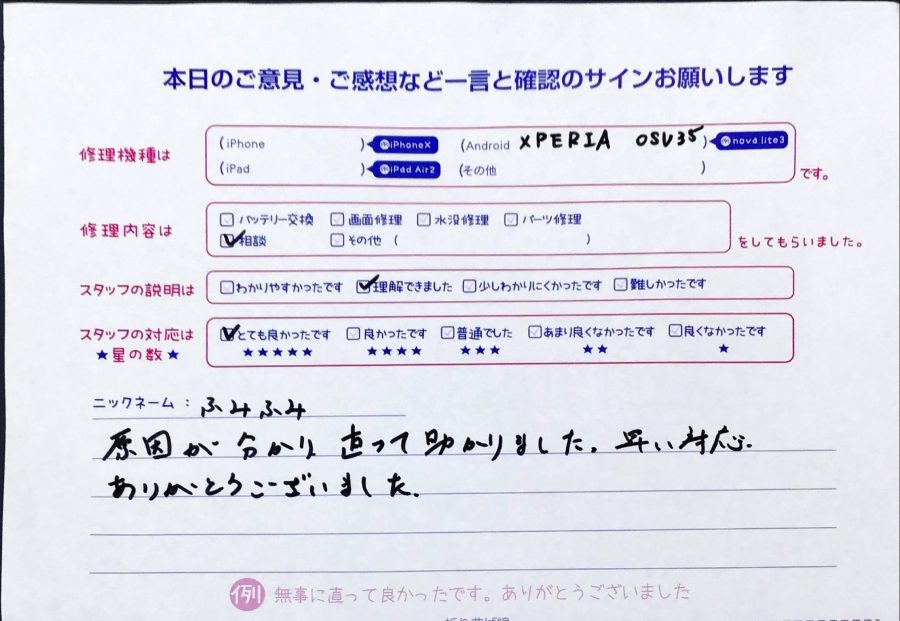 本日のご意見・ご感想など一言と確認のサインお願いします
修理機種は
(iPhone )例iPhoneX (Android XPERIA OSV35 )例nova lite3
(iPad )例iPad Air2 (その他 )
です。
修理内容は
バッテリー交換 画面修理 水没修理 パーツ修理
相談 その他 ( )
をしてもらいました。
スタッフの説明は わかりやすかったです 理解できました 少しわかりにくかったです 難しかったです
スタッフの対応は とても良かったです 良かったです 普通でした あまり良くなかったです 良くなかったです
★星の数★ ★★★★★ ★★★★ ★★★ ★★ ★
ニックネーム：ふみふみ
原因が分かり直って助かりました。早い対応、
ありがとうございました。
例 無事に直って良かったです。ありがとうございました